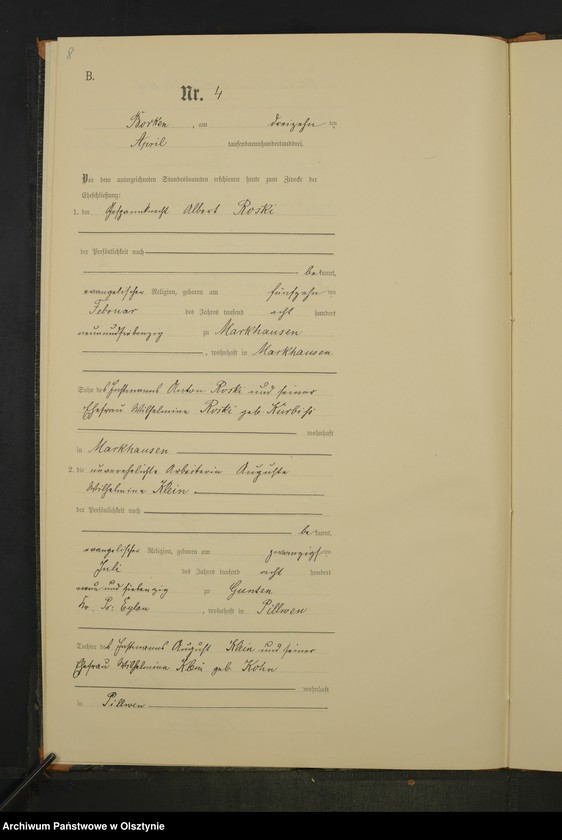 8
B.
Nr. 4
Borken, am dreizehn ten
April tausendneunhundertunddrei.
Vor dem unterzeichneten Standesbeamten erschienen heute zum Zwecke der
Eheschließung:
1. der Gespannknecht Albert Roski
der Persönlichkeit nach
be kannt,
evangelischer Religion, geboren am fünfzehn ten
Februar des Jahres tausend acht hundert
neunundsiebenzig zu Markhausen
, wohnhaft in Markhausen
Sohn des Instmanns Anton Roski und seiner
Ehefrau Wilhelmine Roski geb.
wohnhaft
in Markhausen
2. die unverehelichte Arbeiterin Auguste
Wilhelmine Klein
der Persönlichkeit nach
be kannt,
evangelischer Religion, geboren am zwanzigs ten
Juli des Jahres tausend acht hundert
neun und siebenzig zu Gunten
Kr. Pr. Eylau, wohnhaft in Pillwen
Tochter des Instmanns August Klein und seiner
Ehefrau Wilhelmine Klein geb. Kohn
wohnhaft
in Pillwen
Archiwum Państwowe w Olsztynie